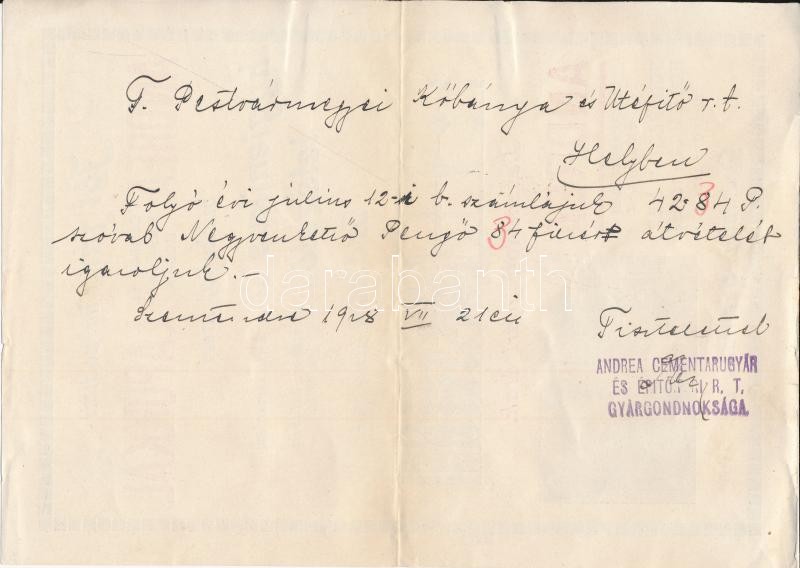 T. Pestvármegyei Kőbánya és Utépitő r.t.
Helyben
Folyó évi július 12-i b. számlájuk 42.84 P.
3
szóval Negyvenkettő Pengő 84 fillér átvételét
3
igazoljuk.-
darabanth
Szentendre 1928 VII 21én
Tisztelettel
ANDREA CEMENTARUGYÁR
ÉS ÉPITŐIPARI R. T.
GYÁRGONDNOKSÁGA.